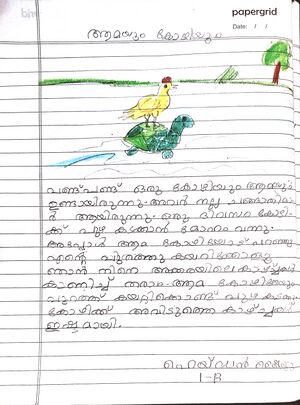 papergrid
Date: / /
ആമയും കോഴിയും
പണ്ട് പണ്ട് ഒരു കോഴിയും ആമയും
ഉണ്ടായിരുന്നു. അവർ നല്ല ചങ്ങാതിമാ
ർ ആയിരുന്നു. ഒരു ദിവസം കോഴി
ക്ക് പുഴ കടക്കാൻ മോഹം വന്നു.
അപ്പോൾ ആമ കോഴിയോട് പറഞ്ഞു
എന്റെ പുറത്തു കയറിക്കോളൂ
ഞാൻ നിന്നെ അക്കരയിലെ കാഴ്ചകൾ
കാണിച്ച് തരാം. ആമ കോഴിയേയും
പുറത്ത് കയറ്റികൊണ്ട് പുഴ കടന്നു
കോഴിക്ക് അവിടുത്തെ കാഴ്ചകൾ
ഇഷ്ടമായി.
1-B